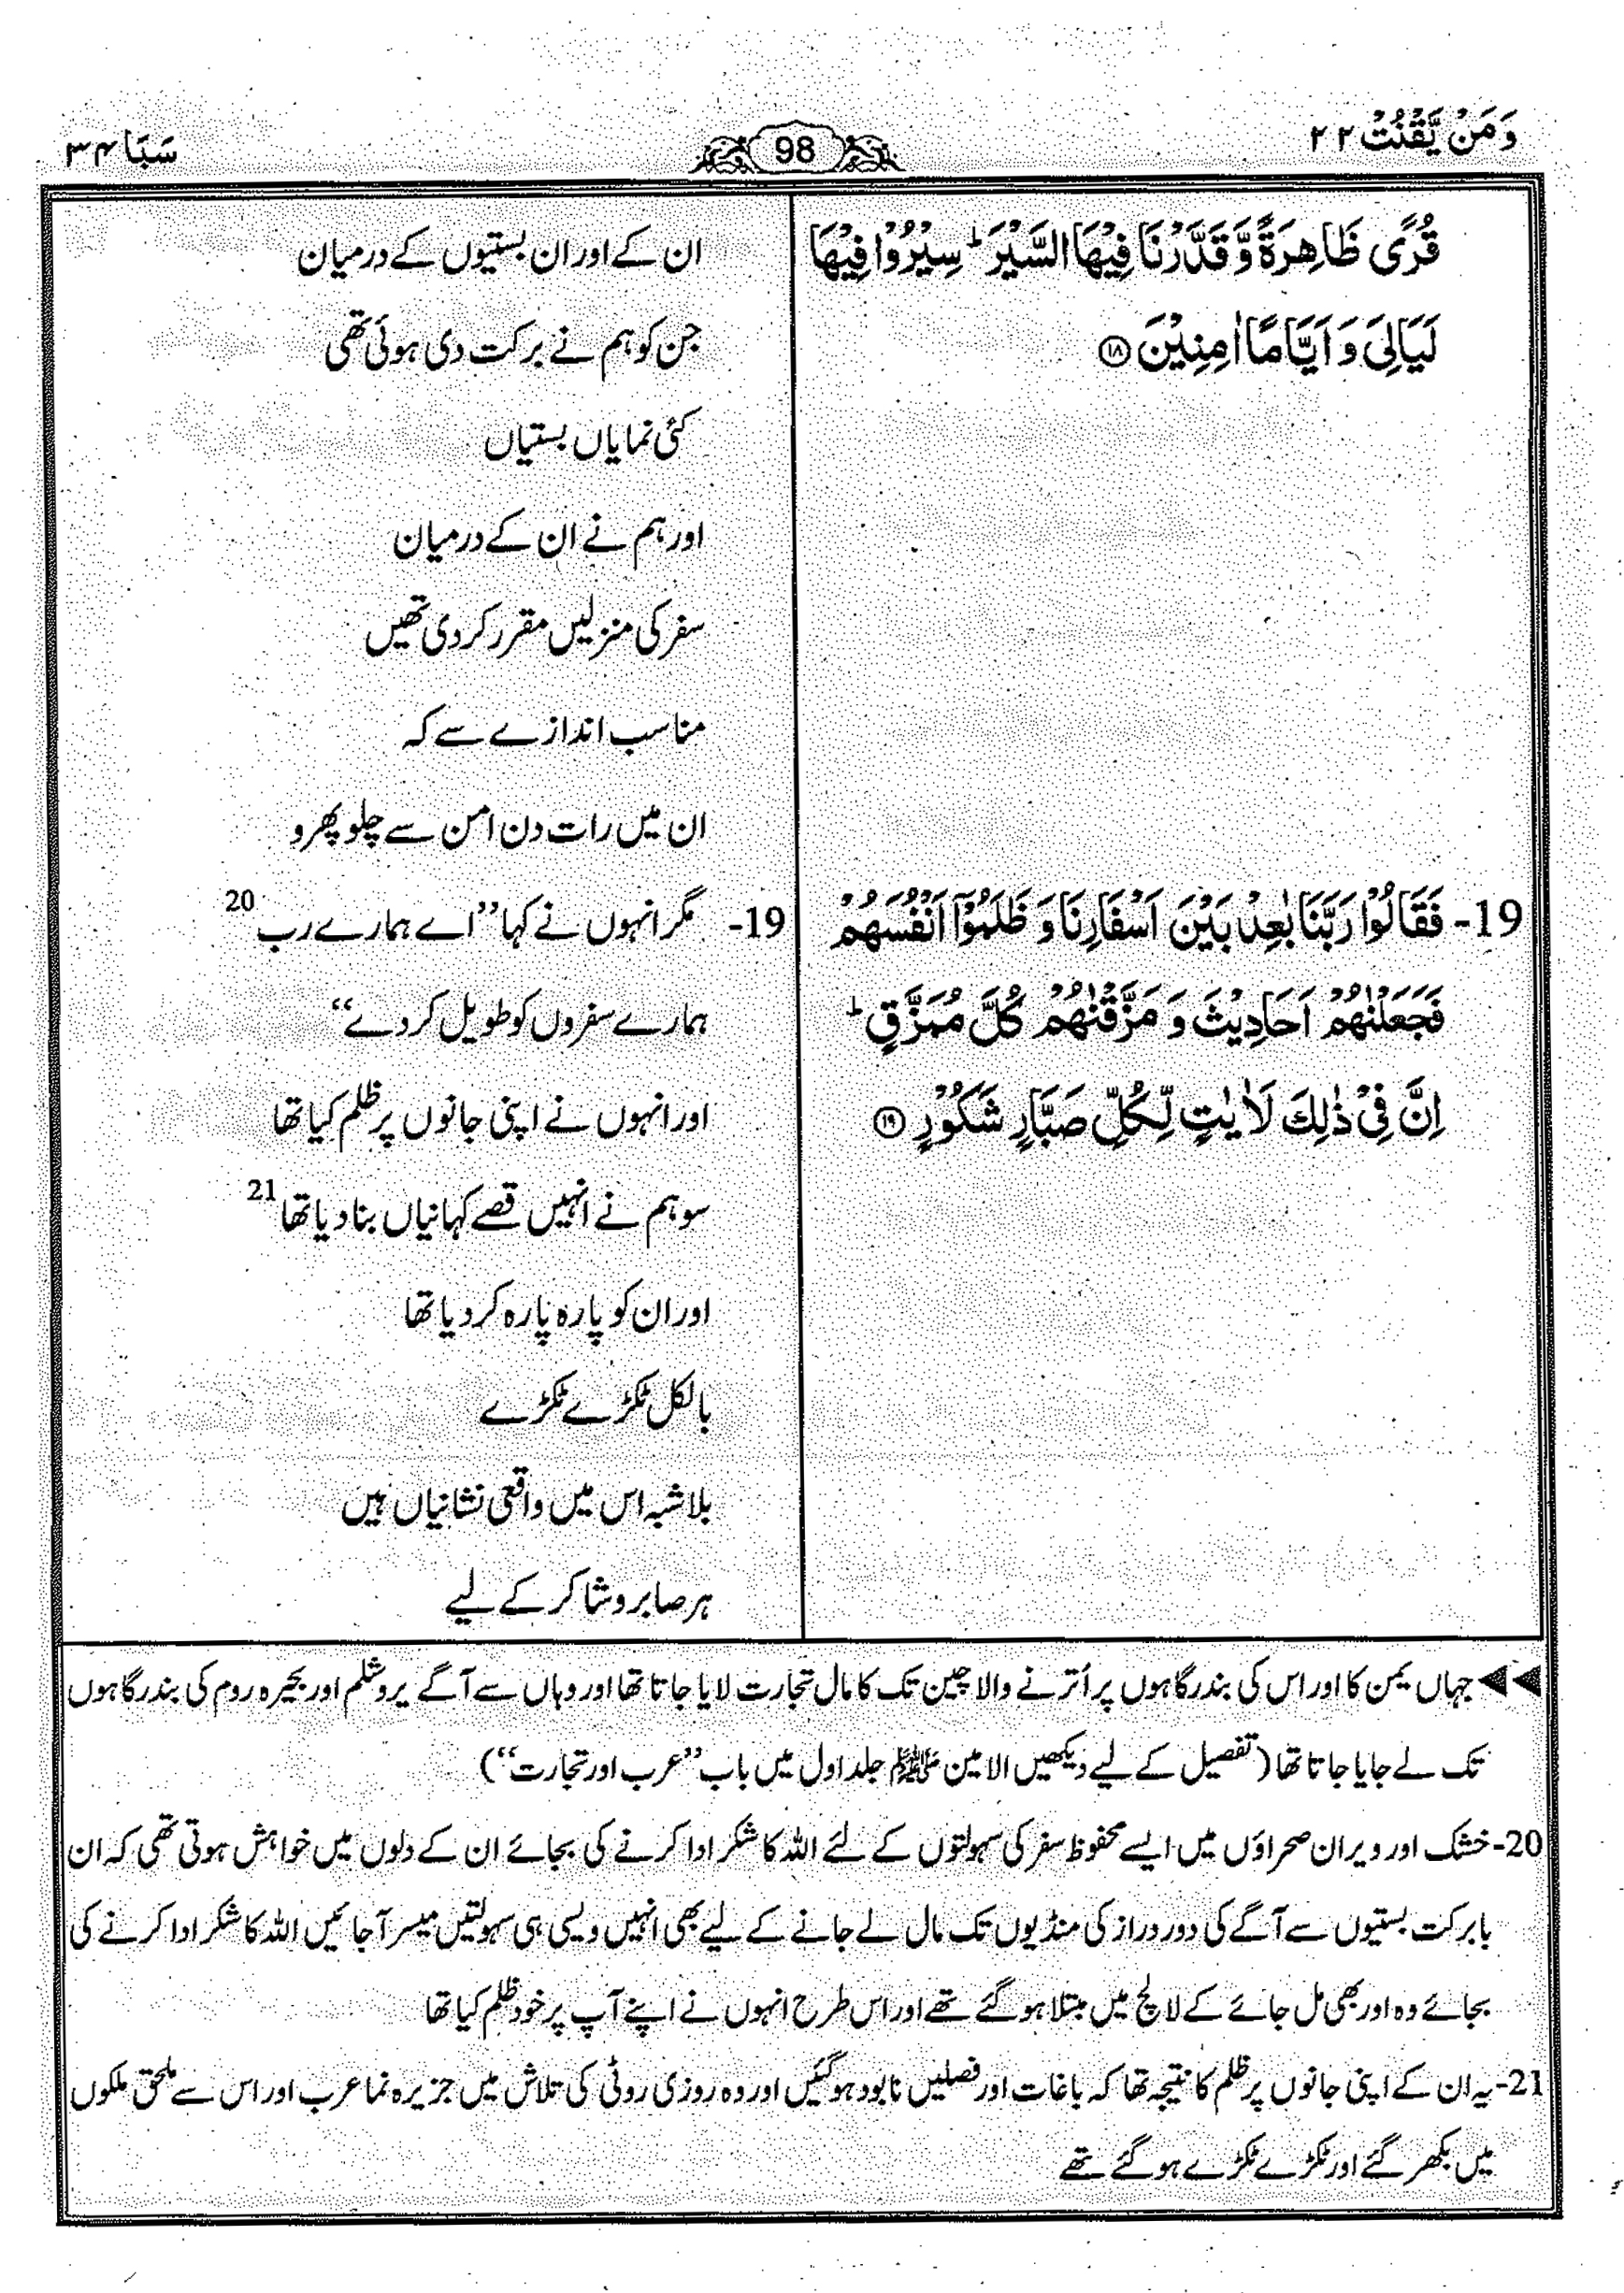 وَمَنْ يَّقْنُتْ ٢٢
98
سَبَا ٣٤
قُرًى ظَاهِرَةً وَّ قَدَّرْنَا فِيْهَا السَّيْرَ ؕ سِيْرُوْا فِيْهَا
لَيَالِیَ وَ اَيَّامًا اٰمِنِيْنَ ﴿۱۸﴾
19- فَقَالُوْا رَبَّنَا بٰعِدْ بَيْنَ اَسْفَارِنَا وَ ظَلَمُوْۤا اَنْفُسَهُمْ
فَجَعَلْنٰهُمْ اَحَادِيْثَ وَ مَزَّقْنٰهُمْ كُلَّ مُمَزَّقٍ ؕ
اِنَّ فِیْ ذٰلِكَ لَاٰيٰتٍ لِّكُلِّ صَبَّارٍ شَكُوْرٍ ﴿۱۹﴾
ان کے اور ان بستیوں کے درمیان
جن کو ہم نے برکت دی ہوئی تھی
کئی نمایاں بستیاں
اور ہم نے ان کے درمیان
سفر کی منزلیں مقرر کر دی تھیں
مناسب اندازے سے کہ
ان میں رات دن امن سے چلو پھرو
19- مگر انہوں نے کہا ”اے ہمارے رب 20
ہمارے سفروں کو طویل کر دے“
اور انہوں نے اپنی جانوں پر ظلم کیا تھا
سو ہم نے انہیں قصے کہانیاں بنا دیا تھا 21
اور ان کو پارہ پارہ کر دیا تھا
بالکل ٹکڑے ٹکڑے
بلا شبہ اس میں واقعی نشانیاں ہیں
ہر صابر و شاکر کے لیے
◀◀ جہاں یمن کا اور اس کی بندرگاہوں پر اُترنے والا چین تک کا مال تجارت لایا جاتا تھا اور وہاں سے آگے یروشلم اور بحیرہ روم کی بندرگاہوں
تک لے جایا جاتا تھا (تفصیل کے لیے دیکھیں الامین ﷺ جلد اول میں باب ”عرب اور تجارت“)
20- خشک اور ویران صحراؤں میں ایسے محفوظ سفر کی سہولتوں کے لئے اللہ کا شکر ادا کرنے کی بجائے ان کے دلوں میں خواہش ہوتی تھی کہ ان
بابرکت بستیوں سے آگے کی دور دراز کی منڈیوں تک مال لے جانے کے لیے بھی انہیں ویسی ہی سہولتیں میسر آ جائیں اللہ کا شکر ادا کرنے کی
بجائے وہ اور بھی مل جائے کے لالچ میں مبتلا ہو گئے تھے اور اس طرح انہوں نے اپنے آپ پر خود ظلم کیا تھا
21- یہ ان کے اپنی جانوں پر ظلم کا نتیجہ تھا کہ باغات اور فصلیں نابود ہو گئیں اور وہ روزی روٹی کی تلاش میں جزیرہ نما عرب اور اس سے ملحق ملکوں
میں بکھر گئے اور ٹکڑے ٹکڑے ہو گئے تھے